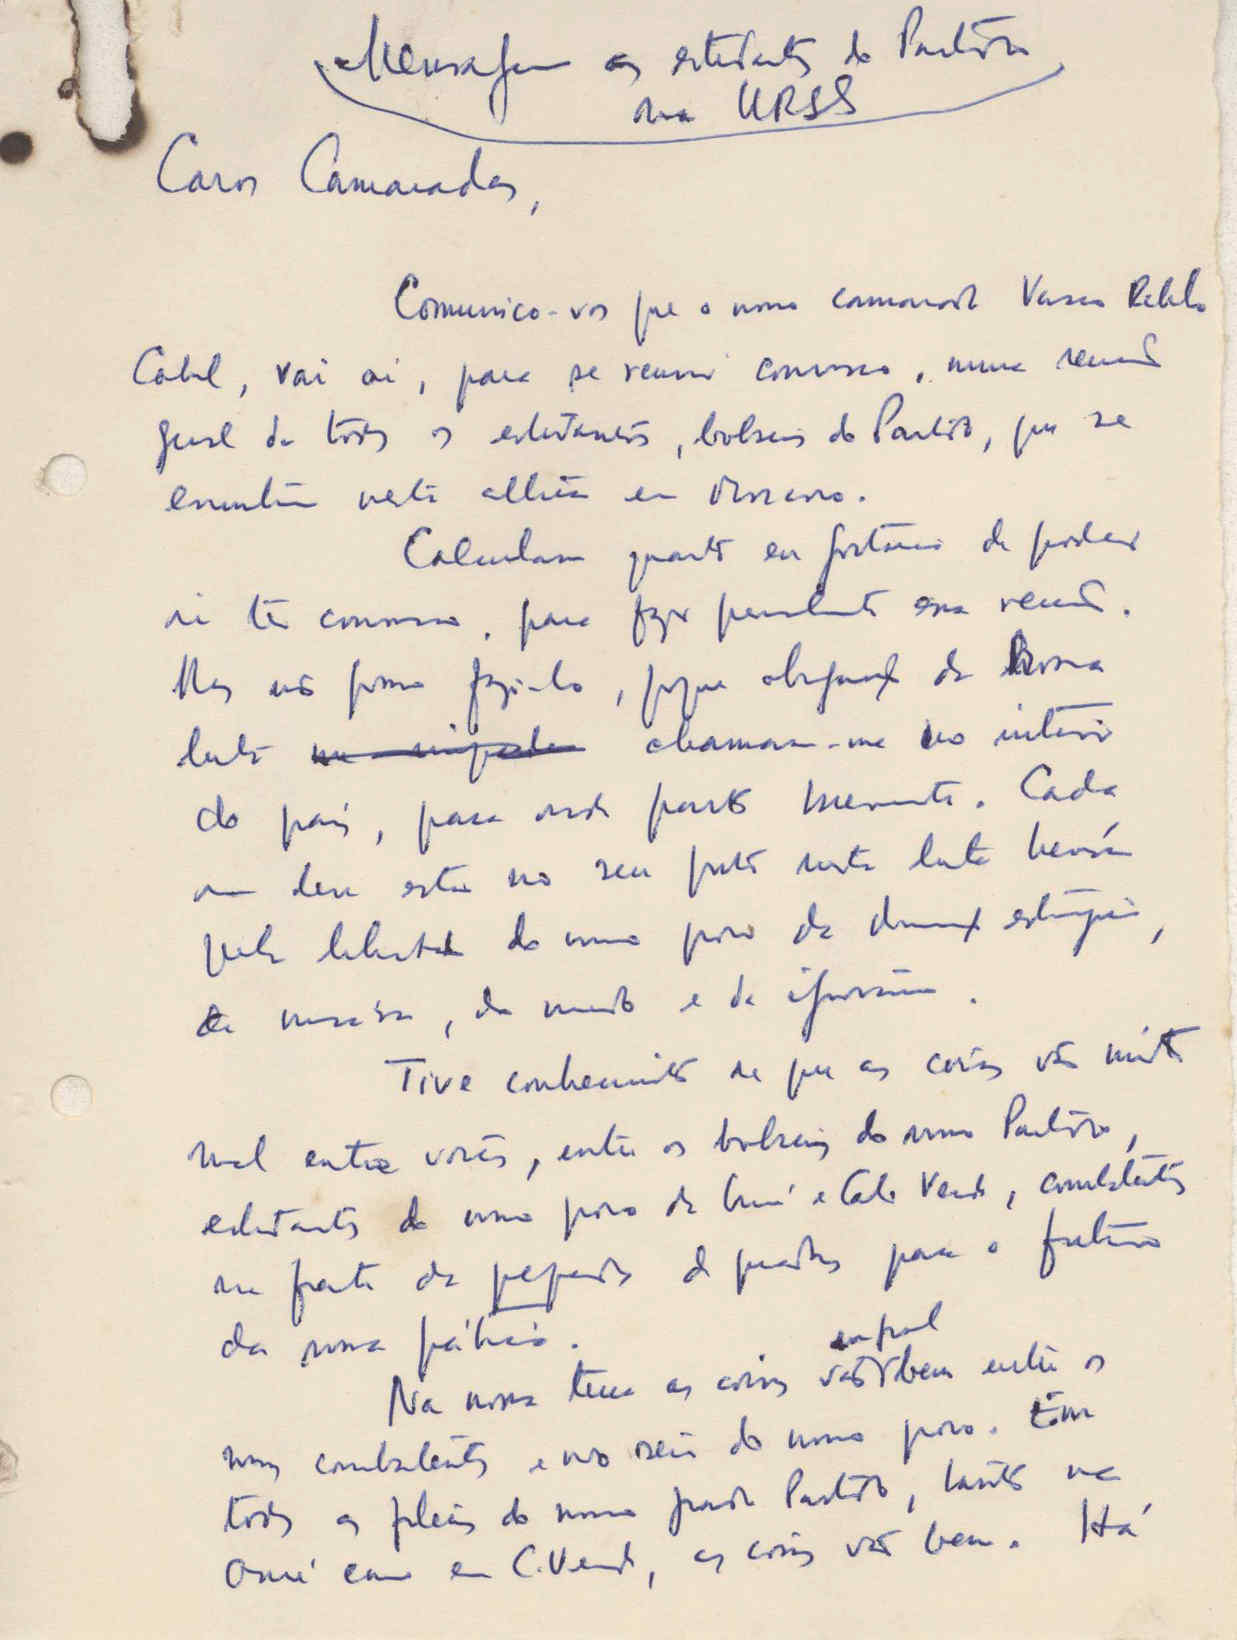 Mensagem aos estudantes do Partido
na URSS
Caros Camaradas,
Comunico-vos que o nosso camarada Vasco
Cabral, vai aí, para se reunir convosco, numa reunião
geral de todos os estudantes, bolseiros do Partido, que se
encontram nesta altura em Moscovo.
Calculam quanto eu gostaria de poder
ir ter convosco, para fazer pessoalmente essa reunião.
Mas não posso fazê-lo, porque obrigações da nossa
luta chamam-me no interior
do país, para onde parto brevemente. Cada
um deve estar no seu posto nesta luta heróica
pela libertação do nosso povo da dominação estrangeira,
da miséria, do medo e da ignorância.
Tive conhecimento de que as coisas vão muito
mal entre vocês, entre os bolseiros do nosso Partido,
estudantes do nosso povo da Guiné e Cabo Verde, combatentes
na frente da preparação de quadros para o futuro
da nossa pátria.
Na nossa terra as coisas vão em geral bem entre os
nossos combatentes e no seio do nosso povo. Em
todas as fileiras do nosso grande Partido, tanto na
Guiné como em C. Verde, as coisas vão bem. Há